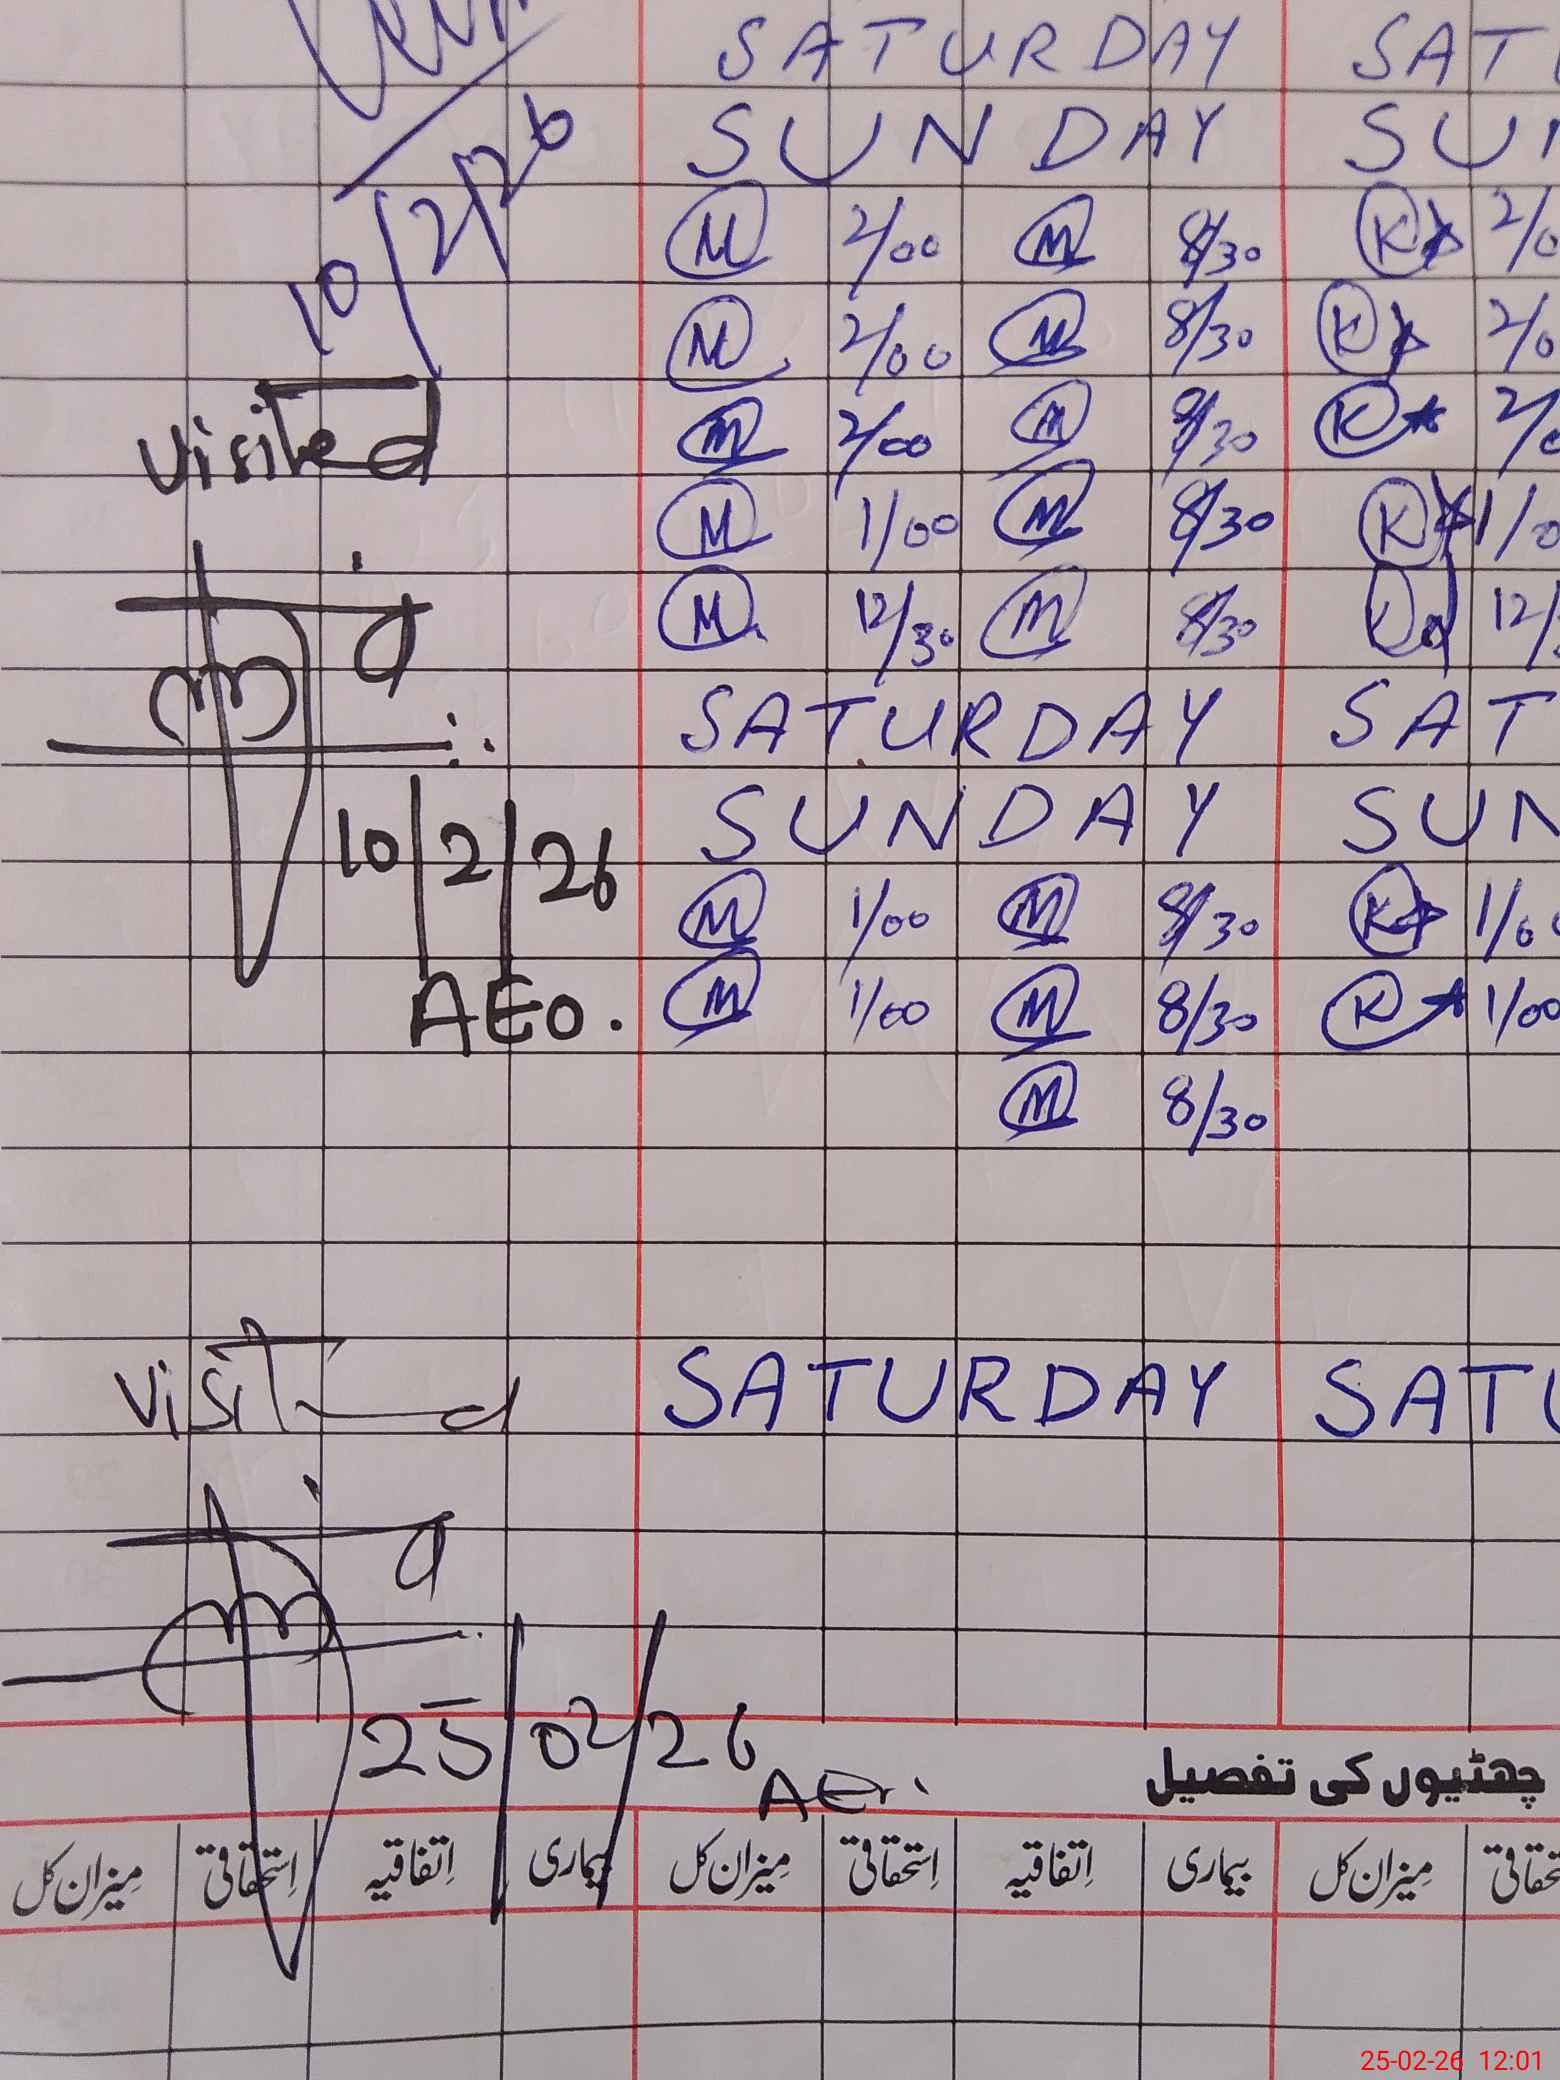 SATURDAY SAT
SUNDAY SU
10/2/26
M 2/00 M 8/30 K 2/0
M 2/00 M 8/30 K 2/0
visited
M 2/00 M 8/30 K 2/0
M 1/00 M 8/30 K 1/0
M 12/30 M 8/30 K 12/
SATURDAY SAT
SUNDAY SUN
10/2/26
M 1/00 M 8/30 K 1/0
AEO.
M 1/00 M 8/30 K 1/00
M 8/30
visited SATURDAY SAT
25/02/26
چھٹیوں کی تفصیل
بیماری اِتفاقیہ اِستحقاقی مِیزان کل بیماری اِتفاقیہ اِستحقاقی مِیزان کل
25-02-26 12:01